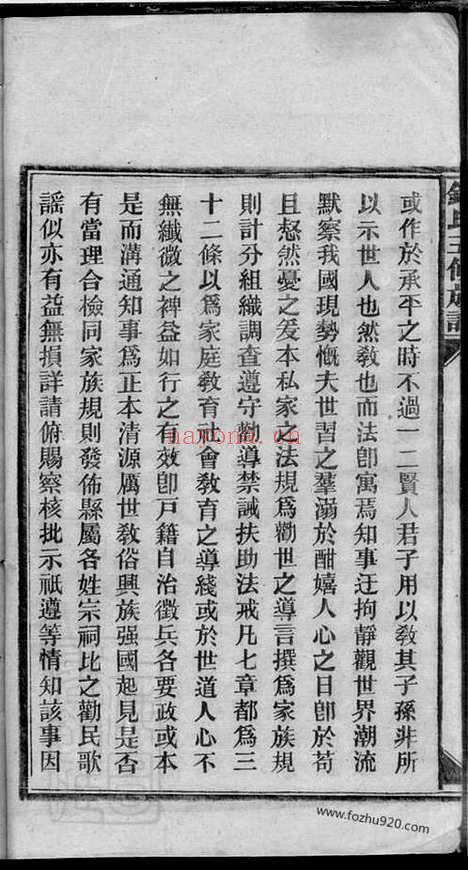 或作於承平之時不過一二賢人君子用以敎其子孫非所
以示世人也然敎也而法卽寓焉知事迂拘靜觀世界潮流
默察我國現勢慨夫世習之羣溺於酣嬉人心之日卽於苟
且惄然憂之爰本私家之法規爲勸世之導言撰爲家族規
則計分組織調查遵守勸導禁誡扶助法戒凡七章都爲三
十二條以爲家庭敎育社會敎育之導綫或於世道人心不
無纖微之裨益如行之有效卽戸籍自治徵兵各要政或本
是而溝通知事爲正本清源厲世敎俗興族强國起見是否
有當理合檢同家族規則發佈縣屬各姓宗祠比之勸民歌
謠似亦有益無損詳請俯賜察核批示祗遵等情知該事因
nayona.cn
www.fozhu920.com